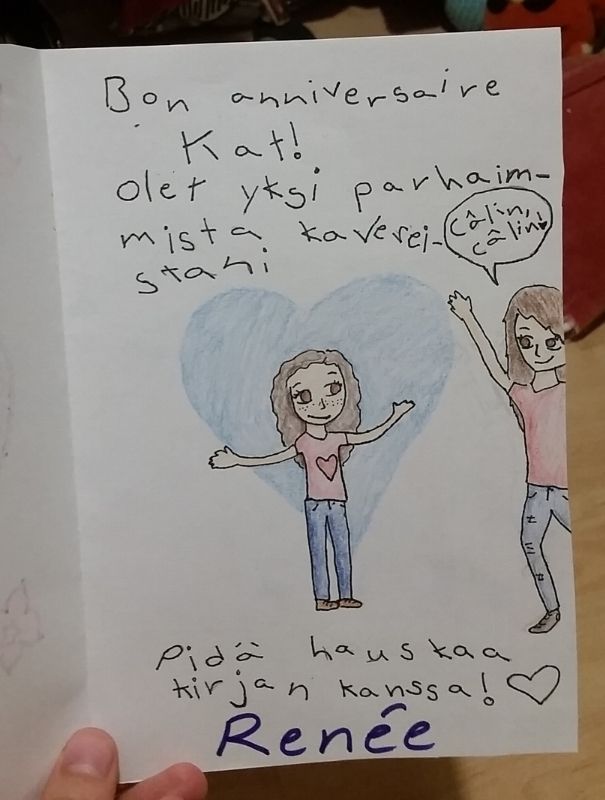 Bon anniversaire
Kat!
Olet yksi parhaim-
mista kaverei-
stani
Câlin,
câlin!
Pidä hauskaa
kirjan kanssa!
Renée